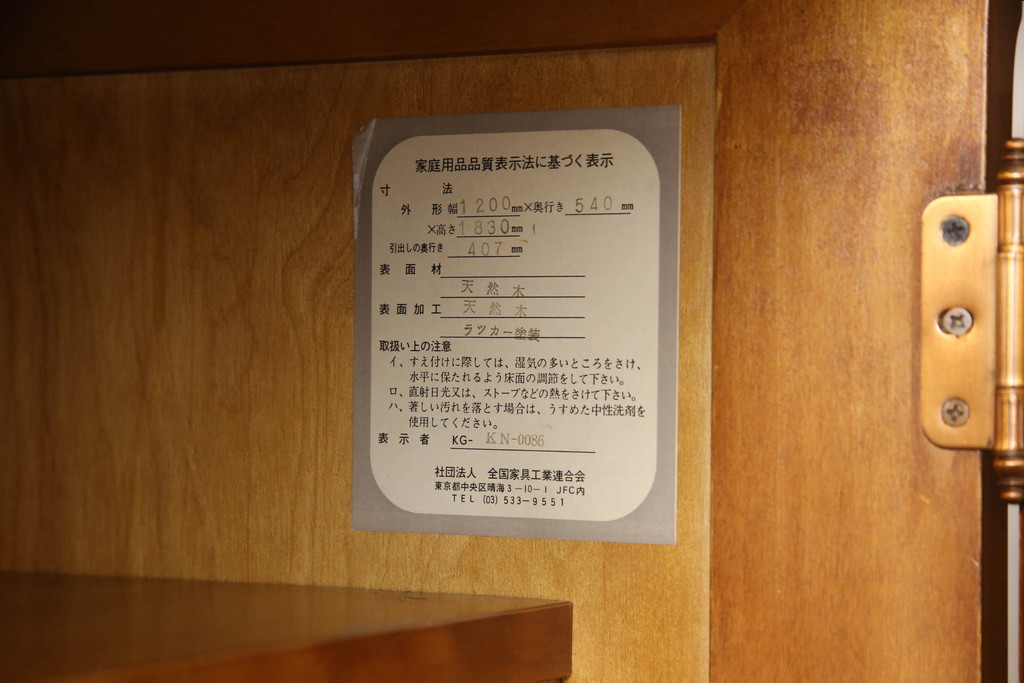 家庭用品品質表示法に基づく表示
寸法
外形 幅1200mm×奥行き540mm
×高さ1830mm
引出しの奥行き 407mm
表面材
天然木
表面加工 天然木
ラツカー塗装
取扱い上の注意
イ、すえ付けに際しては、湿気の多いところをさけ、
水平に保たれるよう床面の調節をして下さい。
ロ、直射日光又は、ストーブなどの熱をさけて下さい。
ハ、著しい汚れを落とす場合は、うすめた中性洗剤を
使用してください。
表示者 KG- KN-0086
社団法人 全国家具工業連合会
東京都中央区晴海3-10-1 JFC内
TEL (03) 533-9551